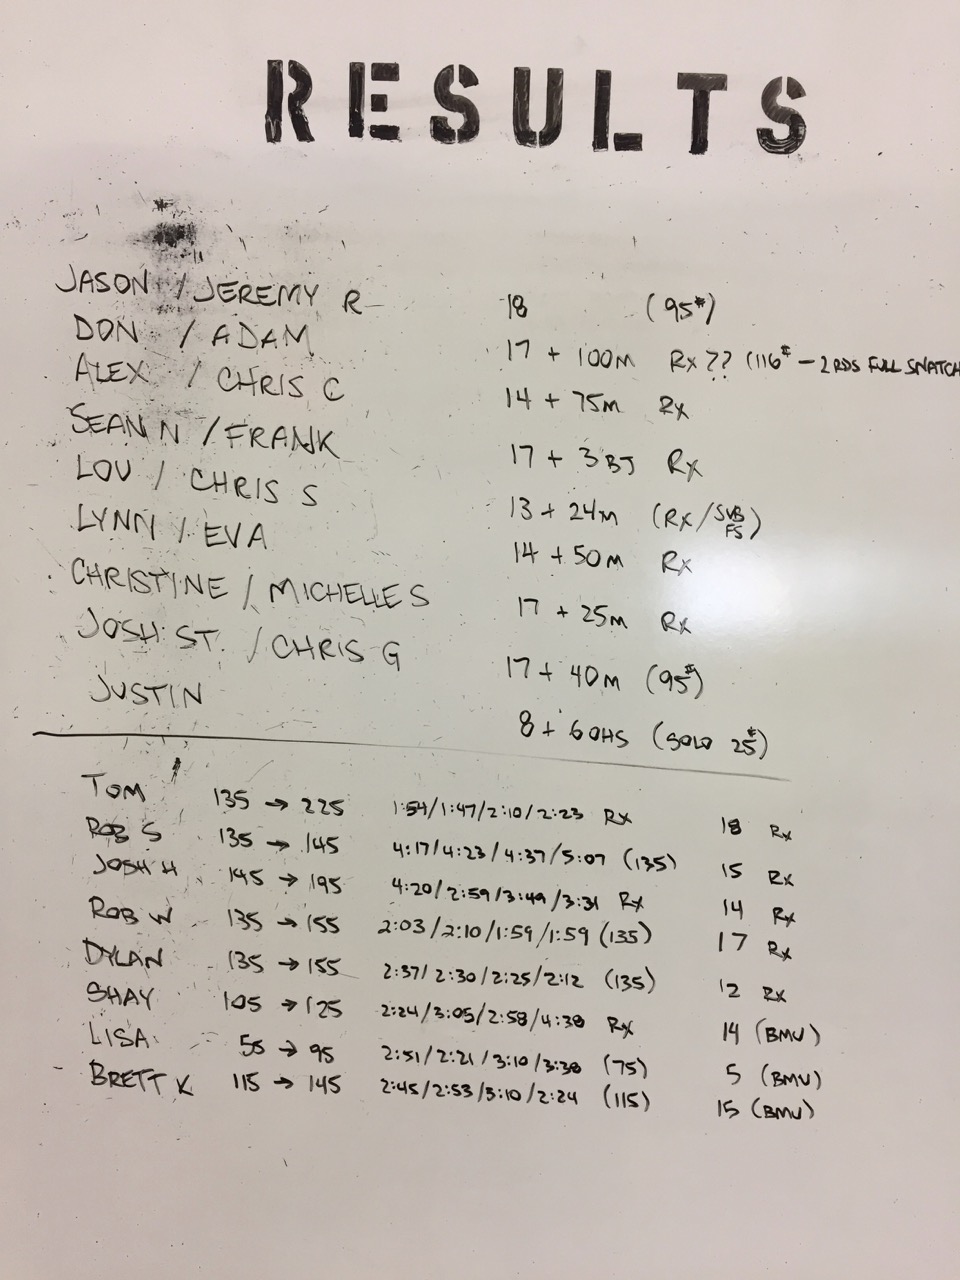 RESULTS
JASON / JEREMY R 18 (95#)
DON / ADAM 17 + 100M Rx ?? (116# - 2 RDS FULL SNATCH
ALEX / CHRIS C 14 + 75M Rx
SEAN N / FRANK 17 + 3 BJ Rx
LOU / CHRIS S 13 + 24M (Rx/SUB FS)
LYNN / EVA 14 + 50M Rx
CHRISTINE / MICHELLE S 17 + 25M Rx
JOSH ST. / CHRIS G 17 + 40M (95#)
JUSTIN 8 + 6 OHS (SOLO 25#)
TOM 135 → 225 1:54/1:47/2:10/2:23 Rx 18 Rx
ROB S 135 → 145 4:17/4:23/4:37/5:07 (135) 15 Rx
JOSH H 145 → 195 4:20/2:59/3:49/3:31 Rx 14 Rx
ROB W 135 → 155 2:03/2:10/1:59/1:59 (135) 17 Rx
DYLAN 135 → 155 2:37/2:30/2:25/2:12 (135) 12 Rx
SHAY 105 → 125 2:24/3:05/2:58/4:38 Rx 14 (BMU)
LISA 55 → 95 2:51/2:21/3:10/3:30 (75) 5 (BMU)
BRETT K 115 → 145 2:45/2:53/3:10/2:24 (115) 15 (BMU)